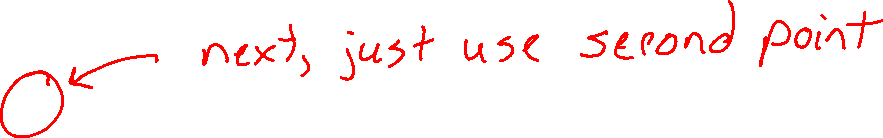 next, just use second point